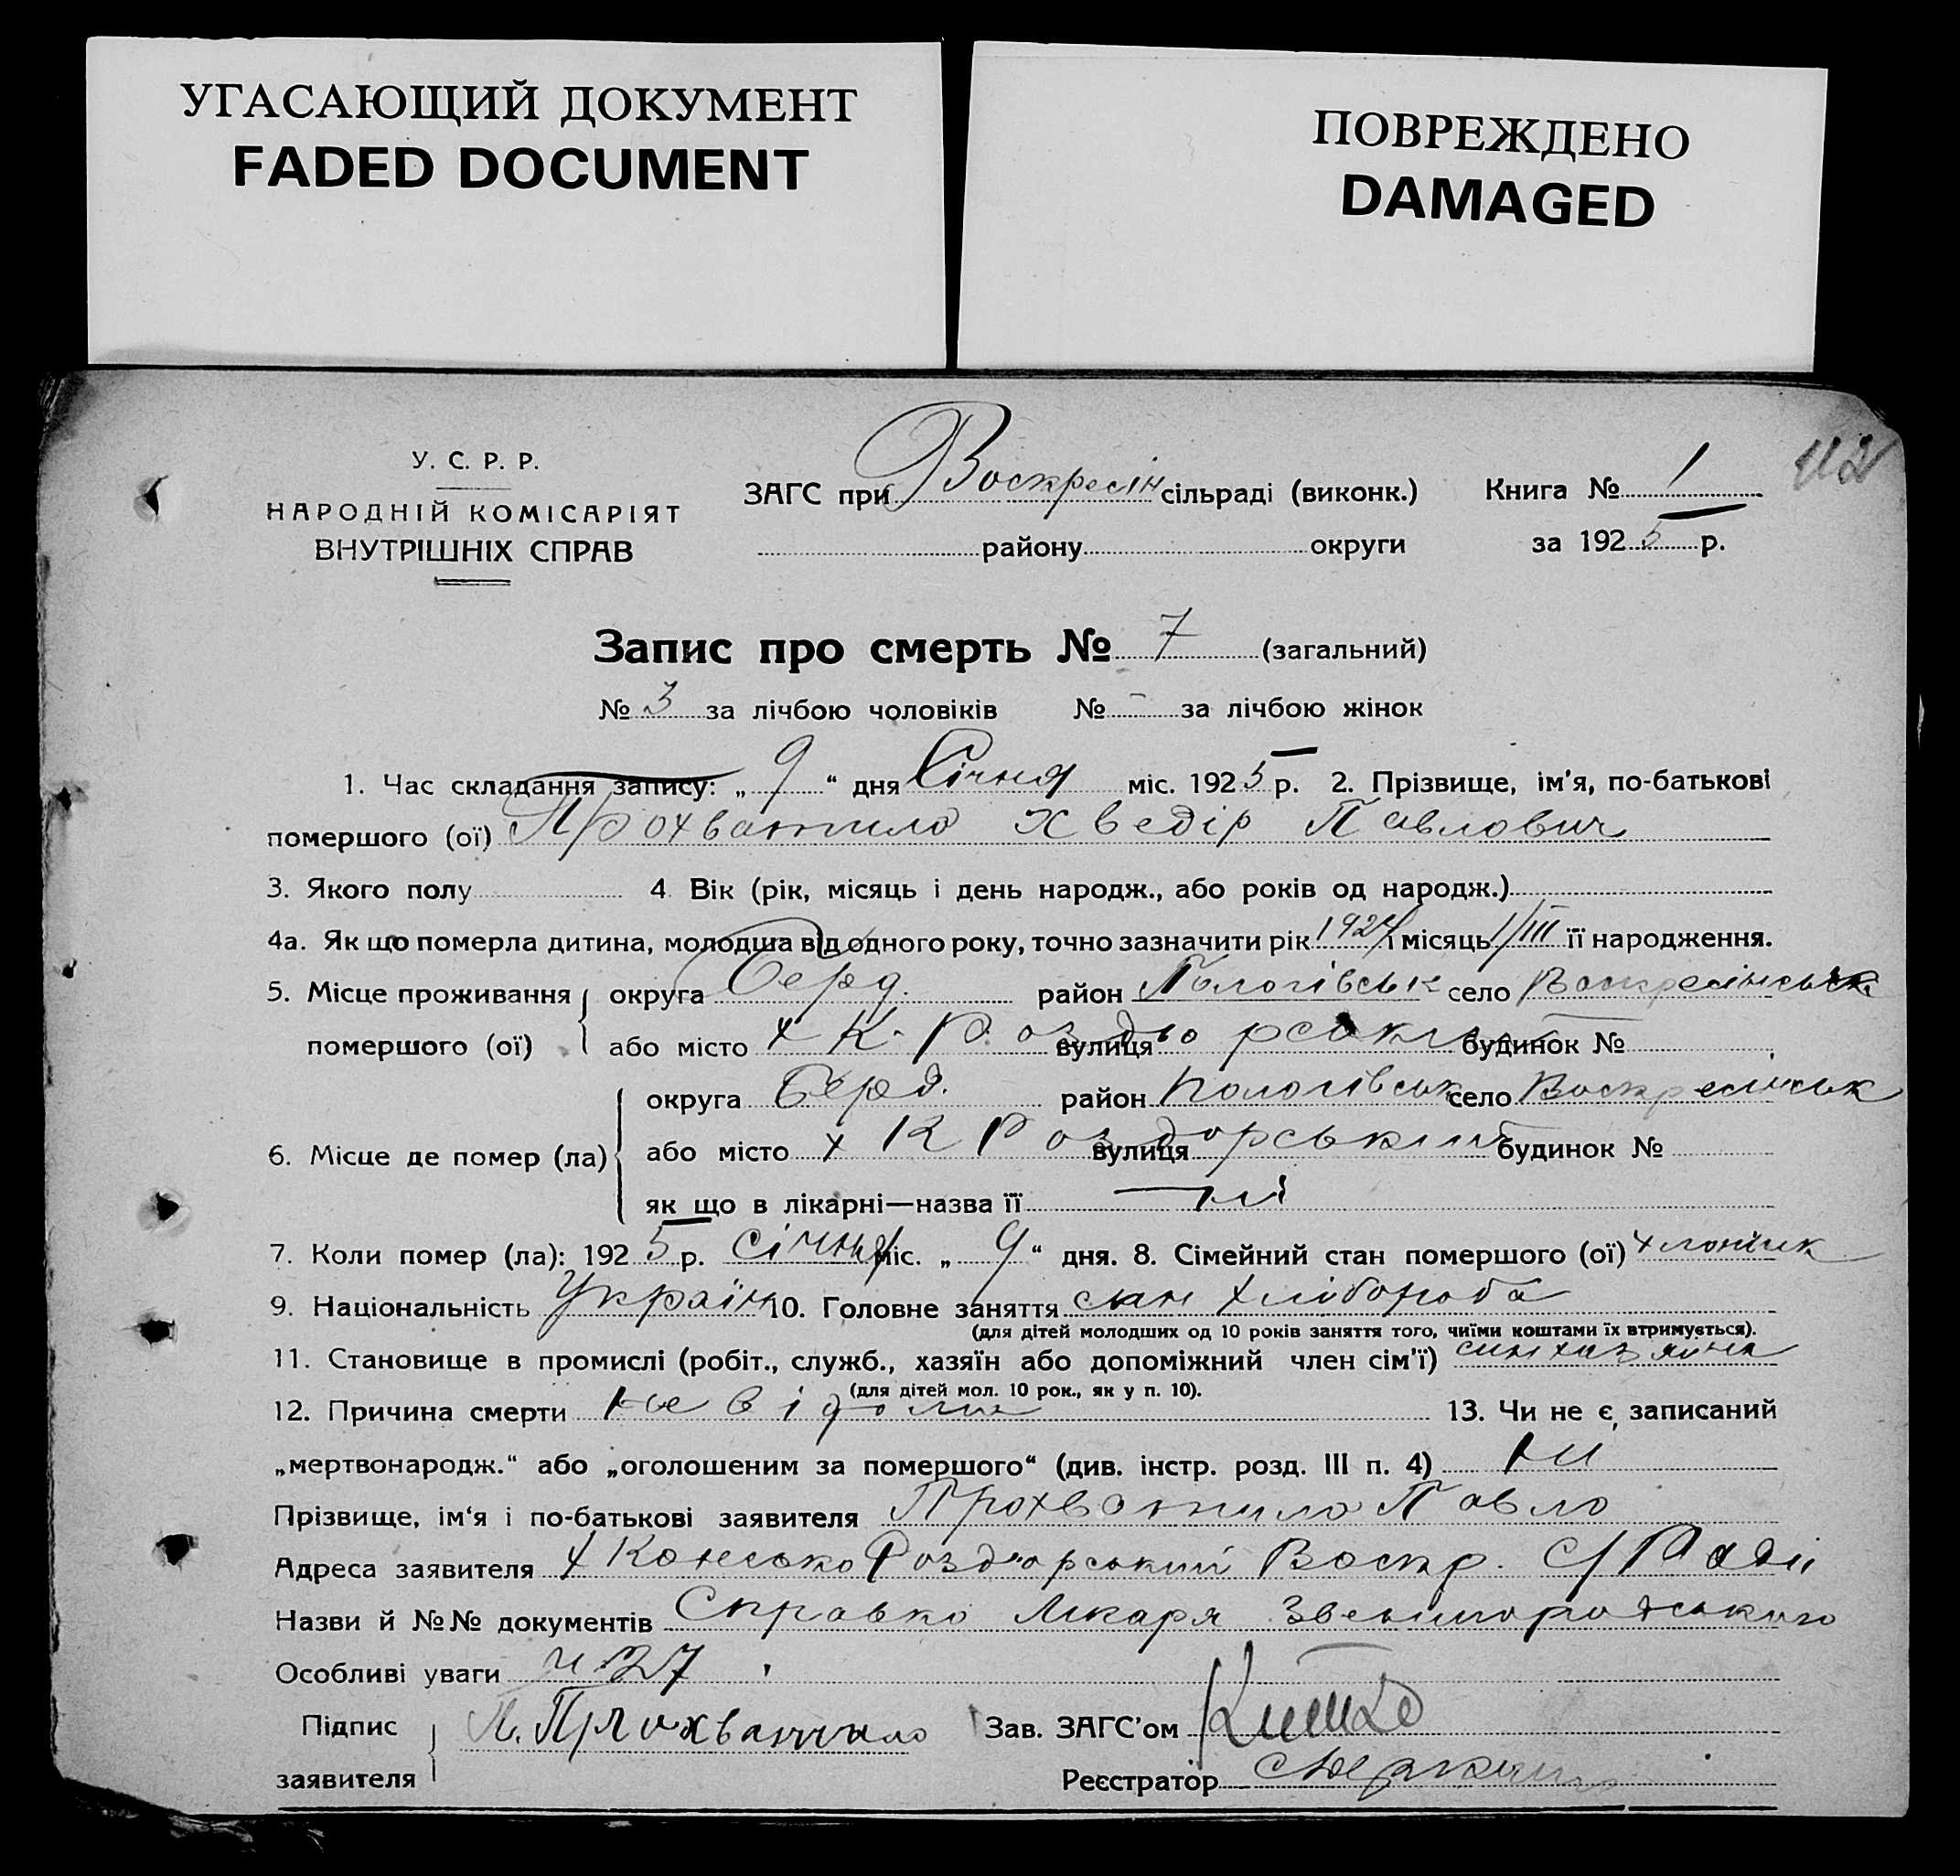 УГАСАЮЩИЙ ДОКУМЕНТ
FADED DOCUMENT
ПОВРЕЖДЕНО
DAMAGED
У. С. Р. Р.
НАРОДНІЙ КОМІСАРІЯТ
ВНУТРІШНІХ СПРАВ
ЗАГС при Воскресін сільраді (виконк.)
району округи
Книга № 1
за 1925 р.
112
Запис про смерть № 7 (загальний)
№ 3 за лічбою чоловіків № - за лічбою жінок
1. Час складання запису: „ 9 “ дня Січня міс. 1925 р. 2. Прізвище, ім'я, по-батькові
помершого (ої) Прохватило Хведір Павлович
3. Якого полу 4 Вік (рік, місяць і день народж., або років од народж.)
4а. Як що померла дитина, молодша від одного року, точно зазначити рік 1924 і місяць 1/III її народження.
5. Місце проживання округа Берд. район Пологівськ село Воскресінськ
помершого (ої) або місто х К. Роздорский вулиця будинок №
6. Місце де помер (ла) округа Берд. район Пологівськ село Воскресінськ
або місто х К Роздорський вулиця будинок №
як що в лікарні—назва її ні
7. Коли помер (ла): 1925 р. січня міс. „ 9 “ дня. 8. Сімейний стан помершого (ої) хлопчик
9. Національність Україн 10. Головне заняття син хлібороба
(для дітей молодших од 10 років заняття того, чиїми коштами їх втримується).
11. Становище в промислі (робіт., служб., хазяїн або допоміжний член сім'ї) син хазяїна
(для дітей мол. 10 рок., як у п. 10).
12. Причина смерти невідома 13. Чи не є записаний
„мертвонародж.“ або „оголошеним за помершого“ (див. інстр. розд. III п. 4) ні
Прізвище, ім'я і по-батькові заявителя Прохватило Павло
Адреса заявителя х Консько Роздорський Воскр. С/Ради
Назви й №№ документів Справка Лікаря Звенигородського
Особливі уваги н 27
Підпис заявителя П. Прохватило Зав. ЗАГС'ом
Реєстратор